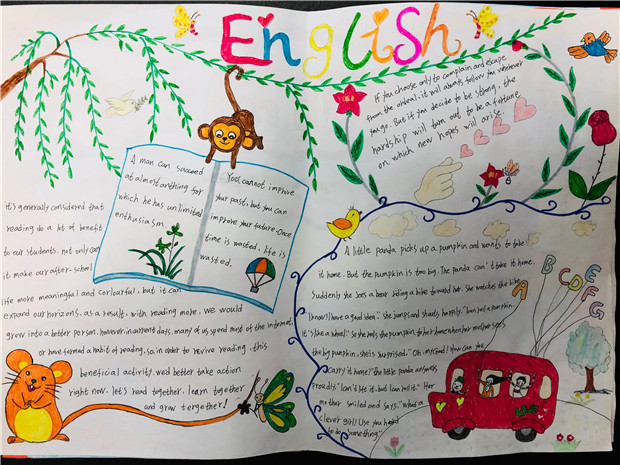 English
A man can succeed
at almost anything for
which he has unlimited
enthusiasm.
You cannot improve
your past, but you can
improve your future. Once
time is wasted, life is
wasted.
If you choose only to complain and escape
from the ordeal, it will always follow you wherever
you go. But if you decide to be strong, the
hardship will turn out to be a fortune
on which new hopes will arise.
it's generally considered that
reading do a lot of benefit
to our students. not only can
it make our after-school
life more meaningful and corloarful, but it can
expand our horizons. as a result, with reading more, we would
grow into a better person. however, in current days, many of us spend most of the internet.
or have formed a habit of reading. so, in order to revive reading, this
beneficial activity, we'd better take action
right now. let's read together, learn together
and grow tergether!
A little panda picks up a pumpkin and wants to take
it home. But the pumpkin is too big. The panda can't take it home.
Suddenly she sees a bear riding a bike toward her. She watches the bike
I know! I have a good idea." she jumps and shouts happily.
It's like a wheel." So she rolls the pumpkin to her home when her mother sees
the big pumpkin, she is surprised. "Oh, my God! How can you
carry it home?" the little panda answers
proudly "I can't lift it, but I can roll it." Her
mother smiled and says. "What a
clever girl! Use you head
to do something"
A B C D E F G